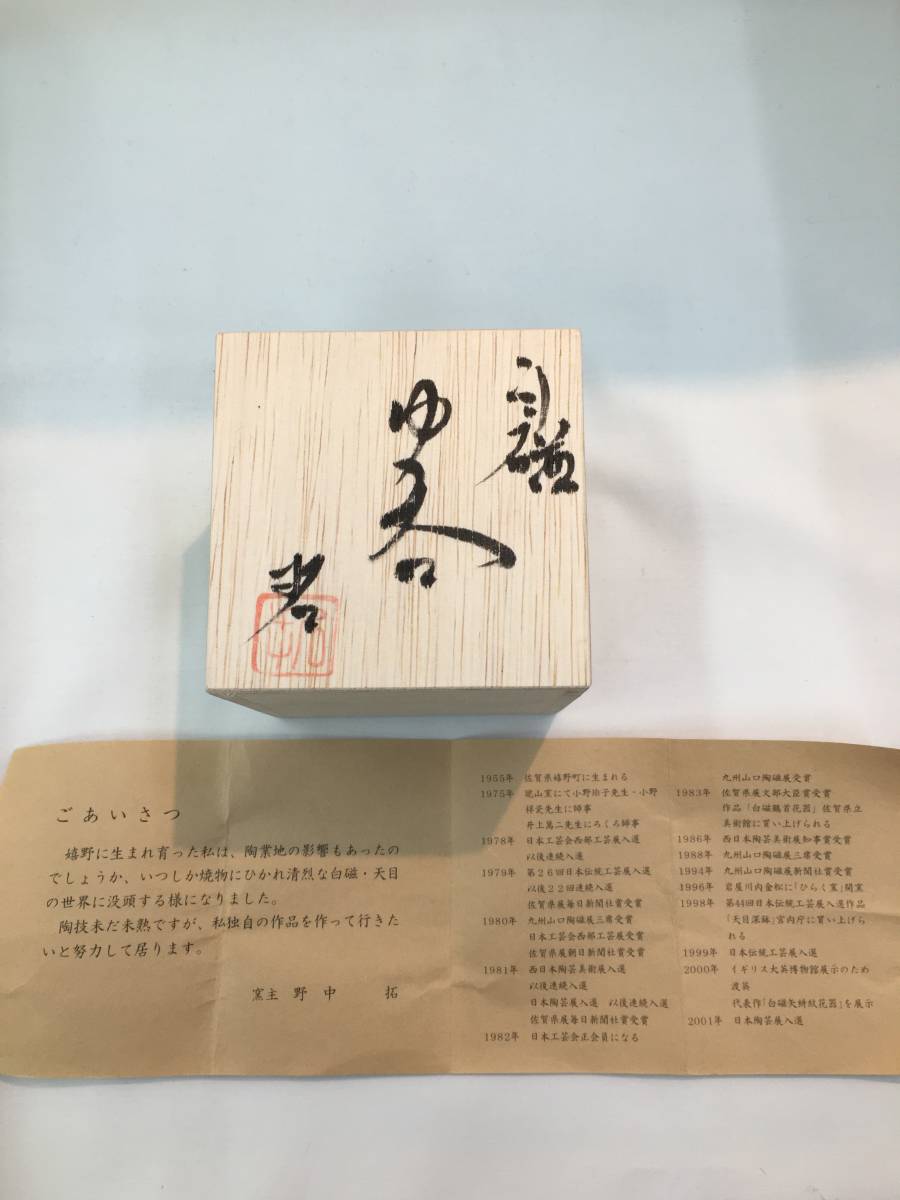 白磁
ゆ呑
拓
ごあいさつ
嬉野に生まれ育った私は、陶業地の影響もあったの
でしょうか、いつしか焼物にひかれ清烈な白磁・天目
の世界に没頭する様になりました。
陶技未だ未熟ですが、私独自の作品を作って行きた
いと努力して居ります。
窯主 野中 拓
1955年 佐賀県嬉野町に生まれる
1975年 暁山窯にて小野珀子先生・小野
祥瓷先生に師事
井上萬二先生にろくろ師事
1978年 日本工芸会西部工芸展入選
以後連続入選
1979年 第26回日本伝統工芸展入選
以後22回連続入選
佐賀県展毎日新聞社賞受賞
1980年 九州山口陶磁展三席受賞
日本工芸会西部工芸展受賞
佐賀県展朝日新聞社賞受賞
1981年 西日本陶芸美術展入選
以後連続入選
日本陶芸展入選 以後連続入選
佐賀県展毎日新聞社賞受賞
1982年 日本工芸会正会員になる
九州山口陶磁展受賞
1983年 佐賀県展文部大臣賞受賞
作品「白磁鶴首花器」佐賀県立
美術館に買い上げられる
1986年 西日本陶芸美術展知事賞受賞
1988年 九州山口陶磁展三席受賞
1994年 九州山口陶磁展新聞社賞受賞
1996年 岩屋川内金松に「ひらく窯」開窯
1998年 第44回日本伝統工芸展入選作品
「天目深鉢」宮内庁に買い上げら
れる
1999年 日本伝統工芸展入選
2000年 イギリス大英博物館展示のため
渡英
代表作「白磁矢絣紋花器」を展示
2001年 日本陶芸展入選